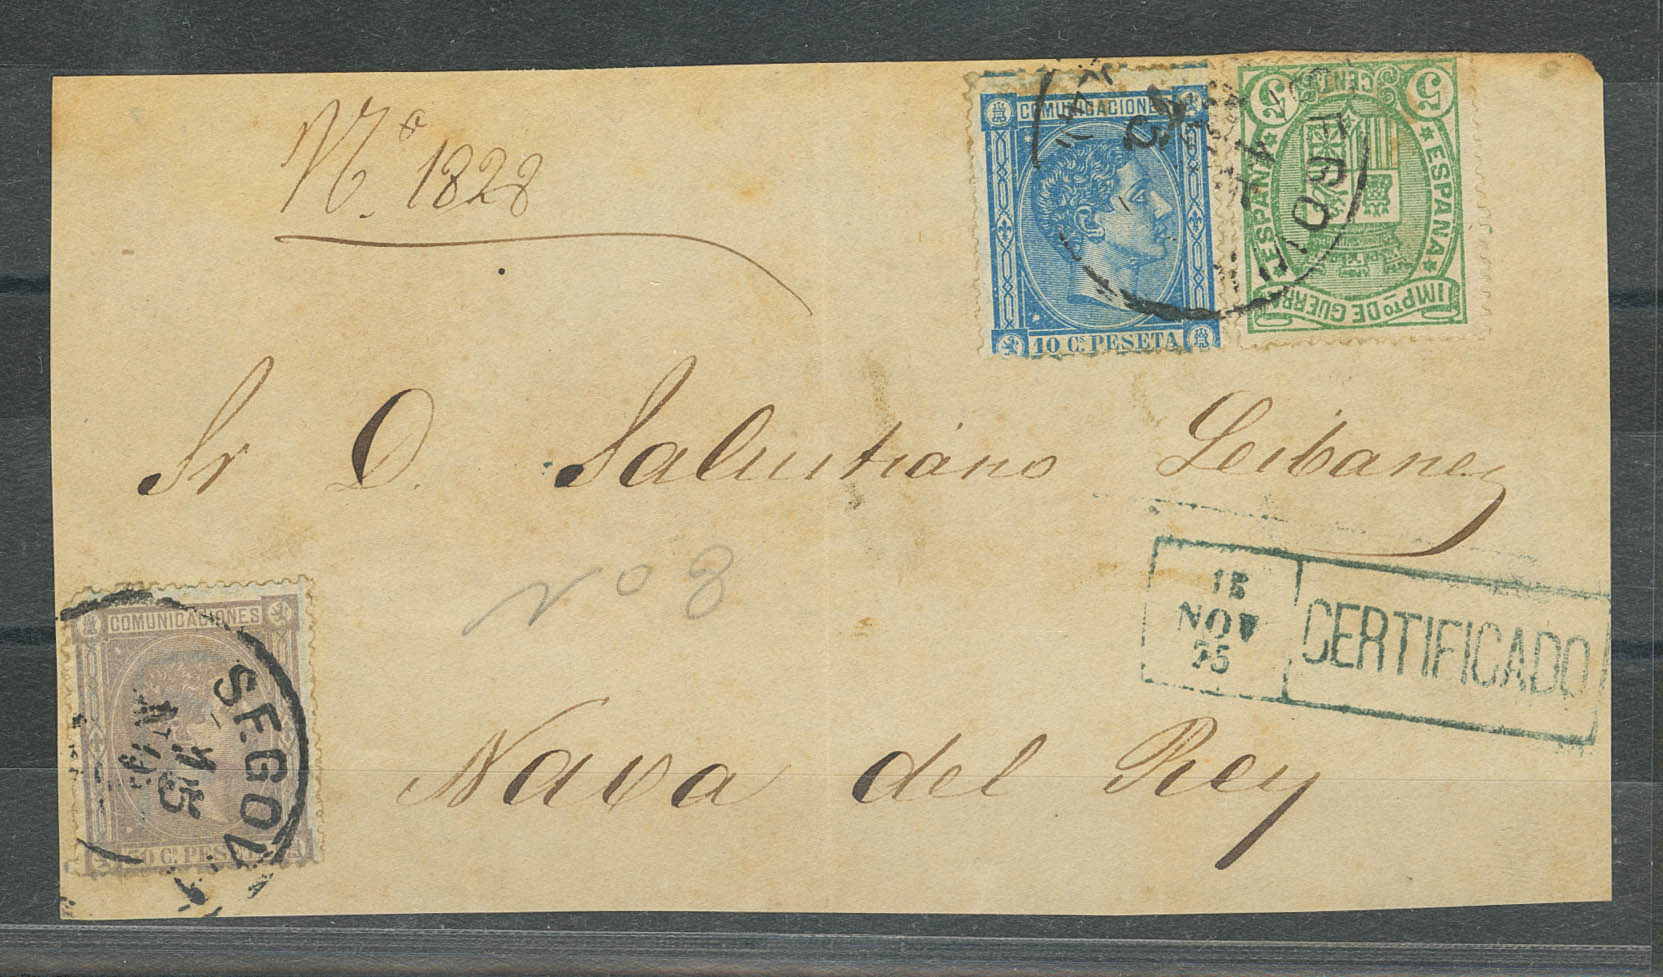 Nº. 1828
COMUNICACIONES
10 Cs PESETA
5 CENTS. 5
ESPAÑA
ESPAÑA
IMPTO DE GUERRA
SEGOVIA
Sr D. Salustiano Leibanez
No 8
15
NOV
75
CERTIFICADO
COMUNICACIONES
50 Cs PESETA
SEGOVIA
15
Nava del Rey